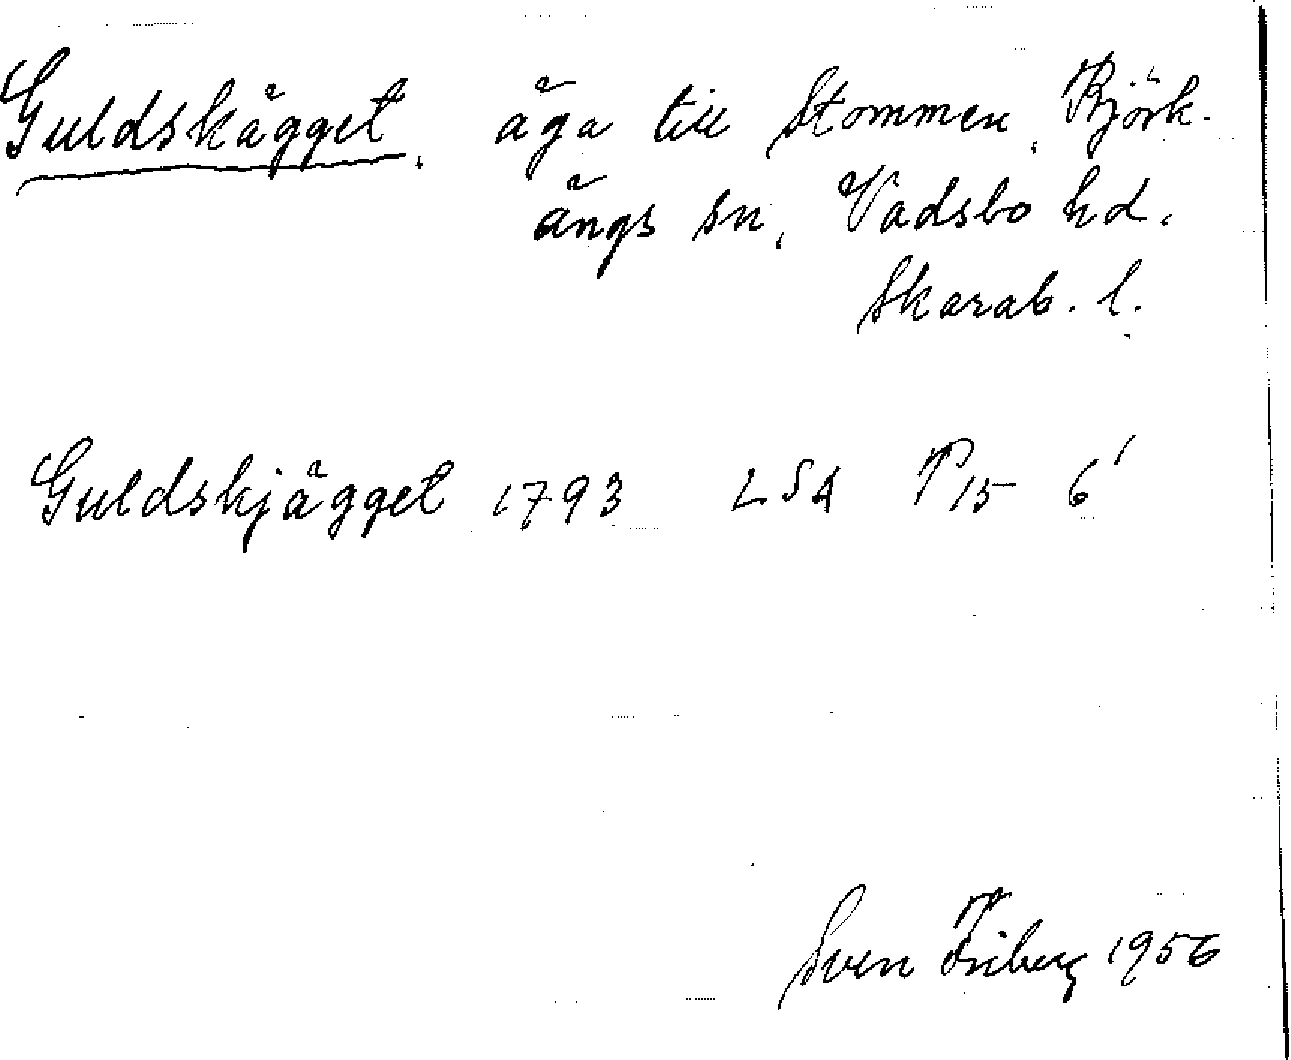 Guldskägget, äga till Stommen, Björk-
ängs sn, Vadsbo hd.
Skarab. l.
Guldskjägget 1793 LSA P15 6'
Sven Friberg 1956